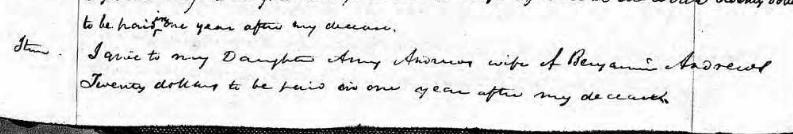 to be paid in one year after my decease.
Item. I give to my Daughter Amy Andrews wife of Benjamin Andrews
Twenty dollars to be paid in one year after my decease